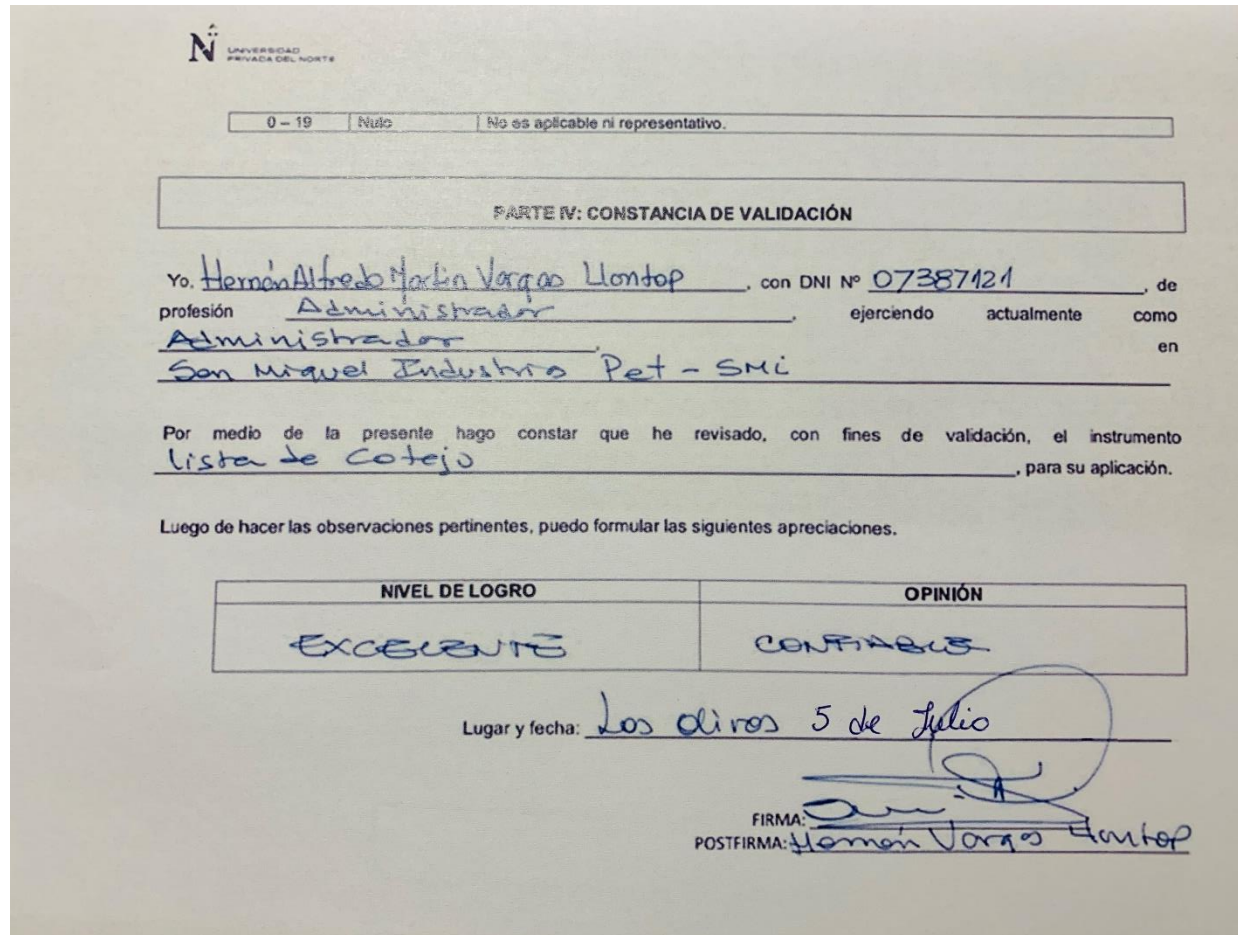 N
UNIVERSIDAD
PRIVADA DEL NORTE
0 – 19 Nulo No es aplicable ni representativo.
PARTE IV: CONSTANCIA DE VALIDACIÓN
Yo. Hernán Alfredo Martin Vargas Llontop, con DNI Nº 07387121, de
profesión Administrador, ejerciendo actualmente como
Administrador, en
San Miguel Industrias Pet - SMi
Por medio de la presente hago constar que he revisado, con fines de validación, el instrumento
lista de Cotejo, para su aplicación.
Luego de hacer las observaciones pertinentes, puedo formular las siguientes apreciaciones.
NIVEL DE LOGRO OPINIÓN
EXCELENTE CONFIABLE
Lugar y fecha: Los Olivos 5 de Julio
FIRMA:
POSTFIRMA: Hernán Vargas Llontop